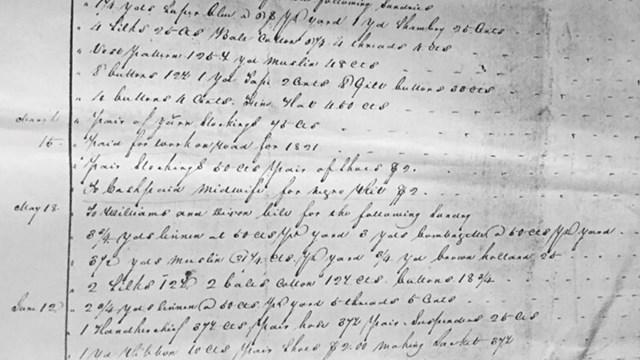 yds Super Blue @ pr yard 1 yd Shambry 25 Cents
" 4 Silks 25 cts 1 Bale Cotton 37½ 4 threads 4 cts
" Vest Pattern 125 1 yd Muslin 48 cts
" 8 buttons 12½ 1 yd Tape 2 Cents 8 Gilt buttons 30 cts
" 4 buttons 4 Cents. Hat 4.50 cts
" 1 pair of yarn stockings 75 cts
15 " Paid for work on road for 1821
" 1 pair stockings 50 cts 1 pair of shoes $2
" To Cash paid Midwife for negro $2.
May 18 " To Williams and bill for the following Sundry
" 3¼ yds linnen at 50 cts pr yard 3 yds bombazette @ 50 cts pr yard
" 3½ yds Muslin 31¼ cts pr yard ¾ yd brown holland 25
" 2 Silks 12½ 2 bales Cotton 12½ cts. buttons 18¾
June 12 " 2¾ yds linnen @ 50 cts pr yard 5 threads 5 Cents
" 1 Handkerchief 37½ cts 1 pair hose 37½ 1 pair Suspenders 25 cts
" 1 yd Ribbon 10 cts 1 pair Shoes $2.00 making Jacket 37½